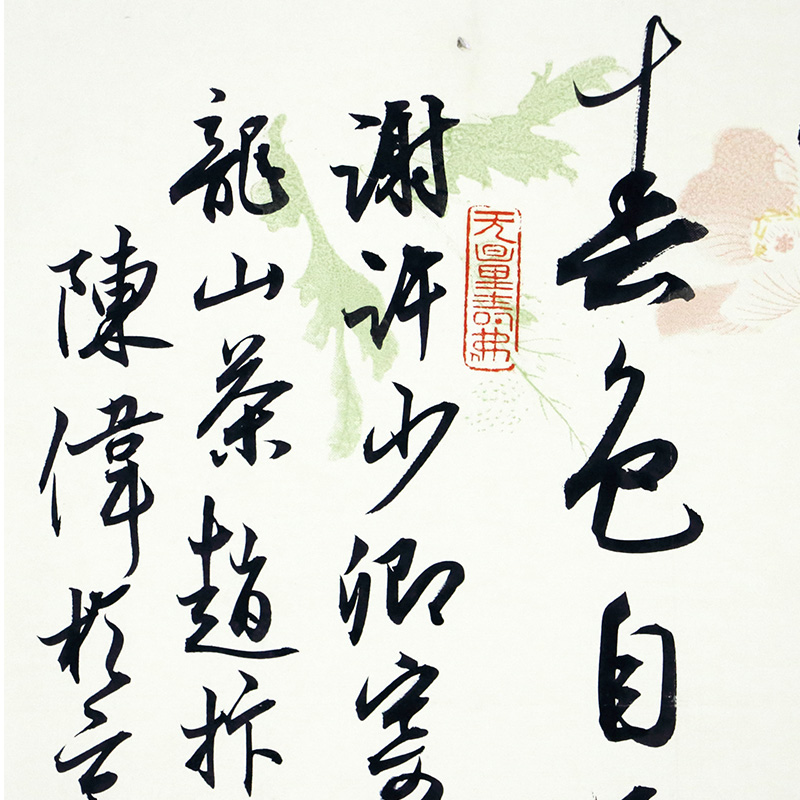 春色自
无量寿佛
謝許少卿寄
龍山茶趙抃
陳偉於